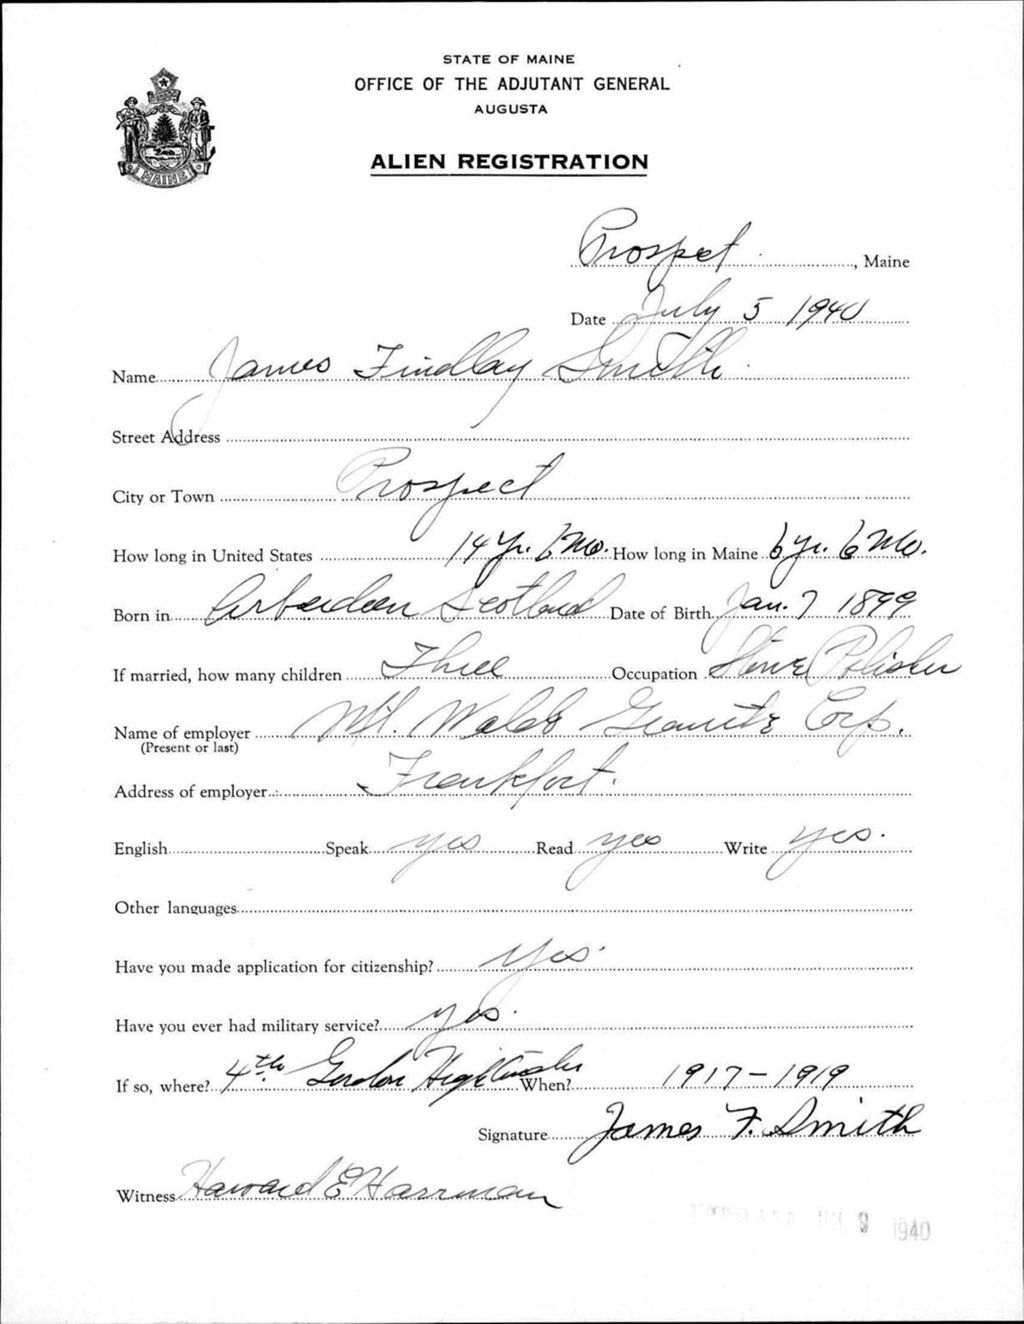 STATE OF MAINE
OFFICE OF THE ADJUTANT GENERAL
AUGUSTA
ALIEN REGISTRATION
MAINE
Prospect, Maine
Date July 5 1940
Name James Findlay Smith
Street Address
City or Town Prospect
How long in United States 14 yr. 6 Mo. How long in Maine 6 yr. 6 Mo.
Born in Arberdeen Scotland Date of Birth Jan. 7 1899
If married, how many children Three Occupation Stone Polisher
Name of employer Mt. Waldo Granite Corp.
(Present or last)
Address of employer Frankfort.
English Speak yes Read yes Write yes.
Other languages
Have you made application for citizenship? Yes.
Have you ever had military service? yes.
If so, where? 4th Gordon Highlander When? 1917-1919
Signature James F. Smith
Witness Harvard E Harriman
9 1940